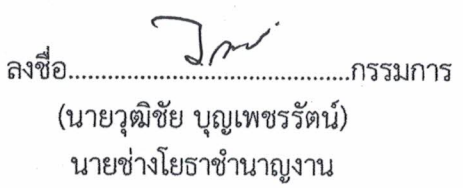 ลงชื่อ.............................................กรรมการ
(นายวุฒิชัย บุญเพชรรัตน์)
นายช่างโยธาชำนาญงาน